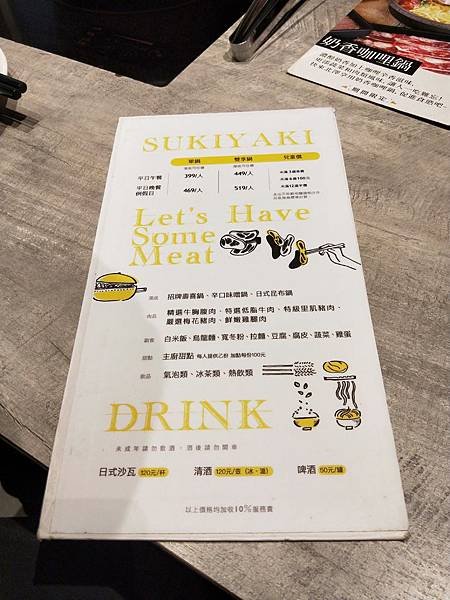 奶香咖哩鍋
SUKIYAKI
單鍋 雙享鍋 兒童價
平日午餐 399/人 449/人
平日晚餐 469/人 519/人
例假日
Let's Have
Some
Meat
湯底 招牌壽喜鍋、辛口味噌鍋、日式昆布鍋
肉品 精選牛胸腹肉、特選低脂牛肉、特級里肌豬肉、
嚴選梅花豬肉、鮮嫩雞腿肉
副餐 白米飯、烏龍麵、寬冬粉、拉麵、豆腐、腐皮、蔬菜、雞蛋
甜點 主廚甜點 每人提供乙份 加點每份100元
飲品 氣泡類、冰茶類、熱飲類
DRINK
未成年請勿飲酒。酒後請勿開車
日式沙瓦 120元/杯 清酒 120元/壺（冰、溫） 啤酒 50元/罐
以上價格均加收10%服務費